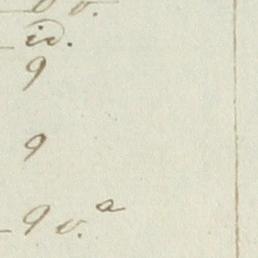 id.
9
9
9 v.a